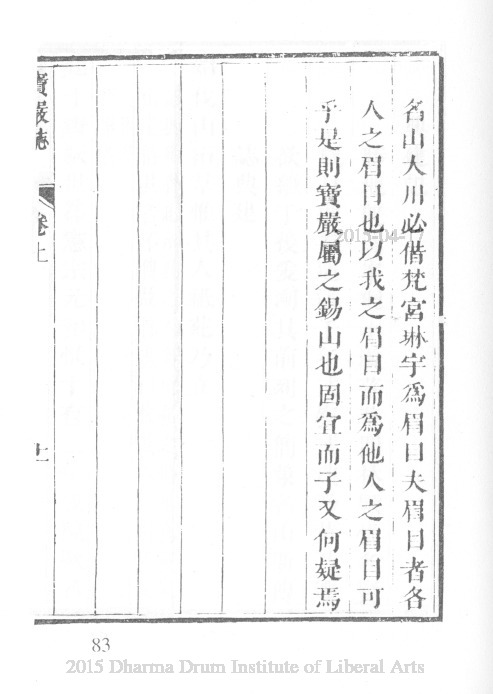 名山大川必借梵宮琳宇為眉目夫眉目者各
人之眉目也以我之眉目而為他人之眉目可
乎是則寶嚴屬之錫山也固宜而子又何疑焉
寶嚴志 卷上 上
83
2013-04-17
2015 Dharma Drum Institute of Liberal Arts